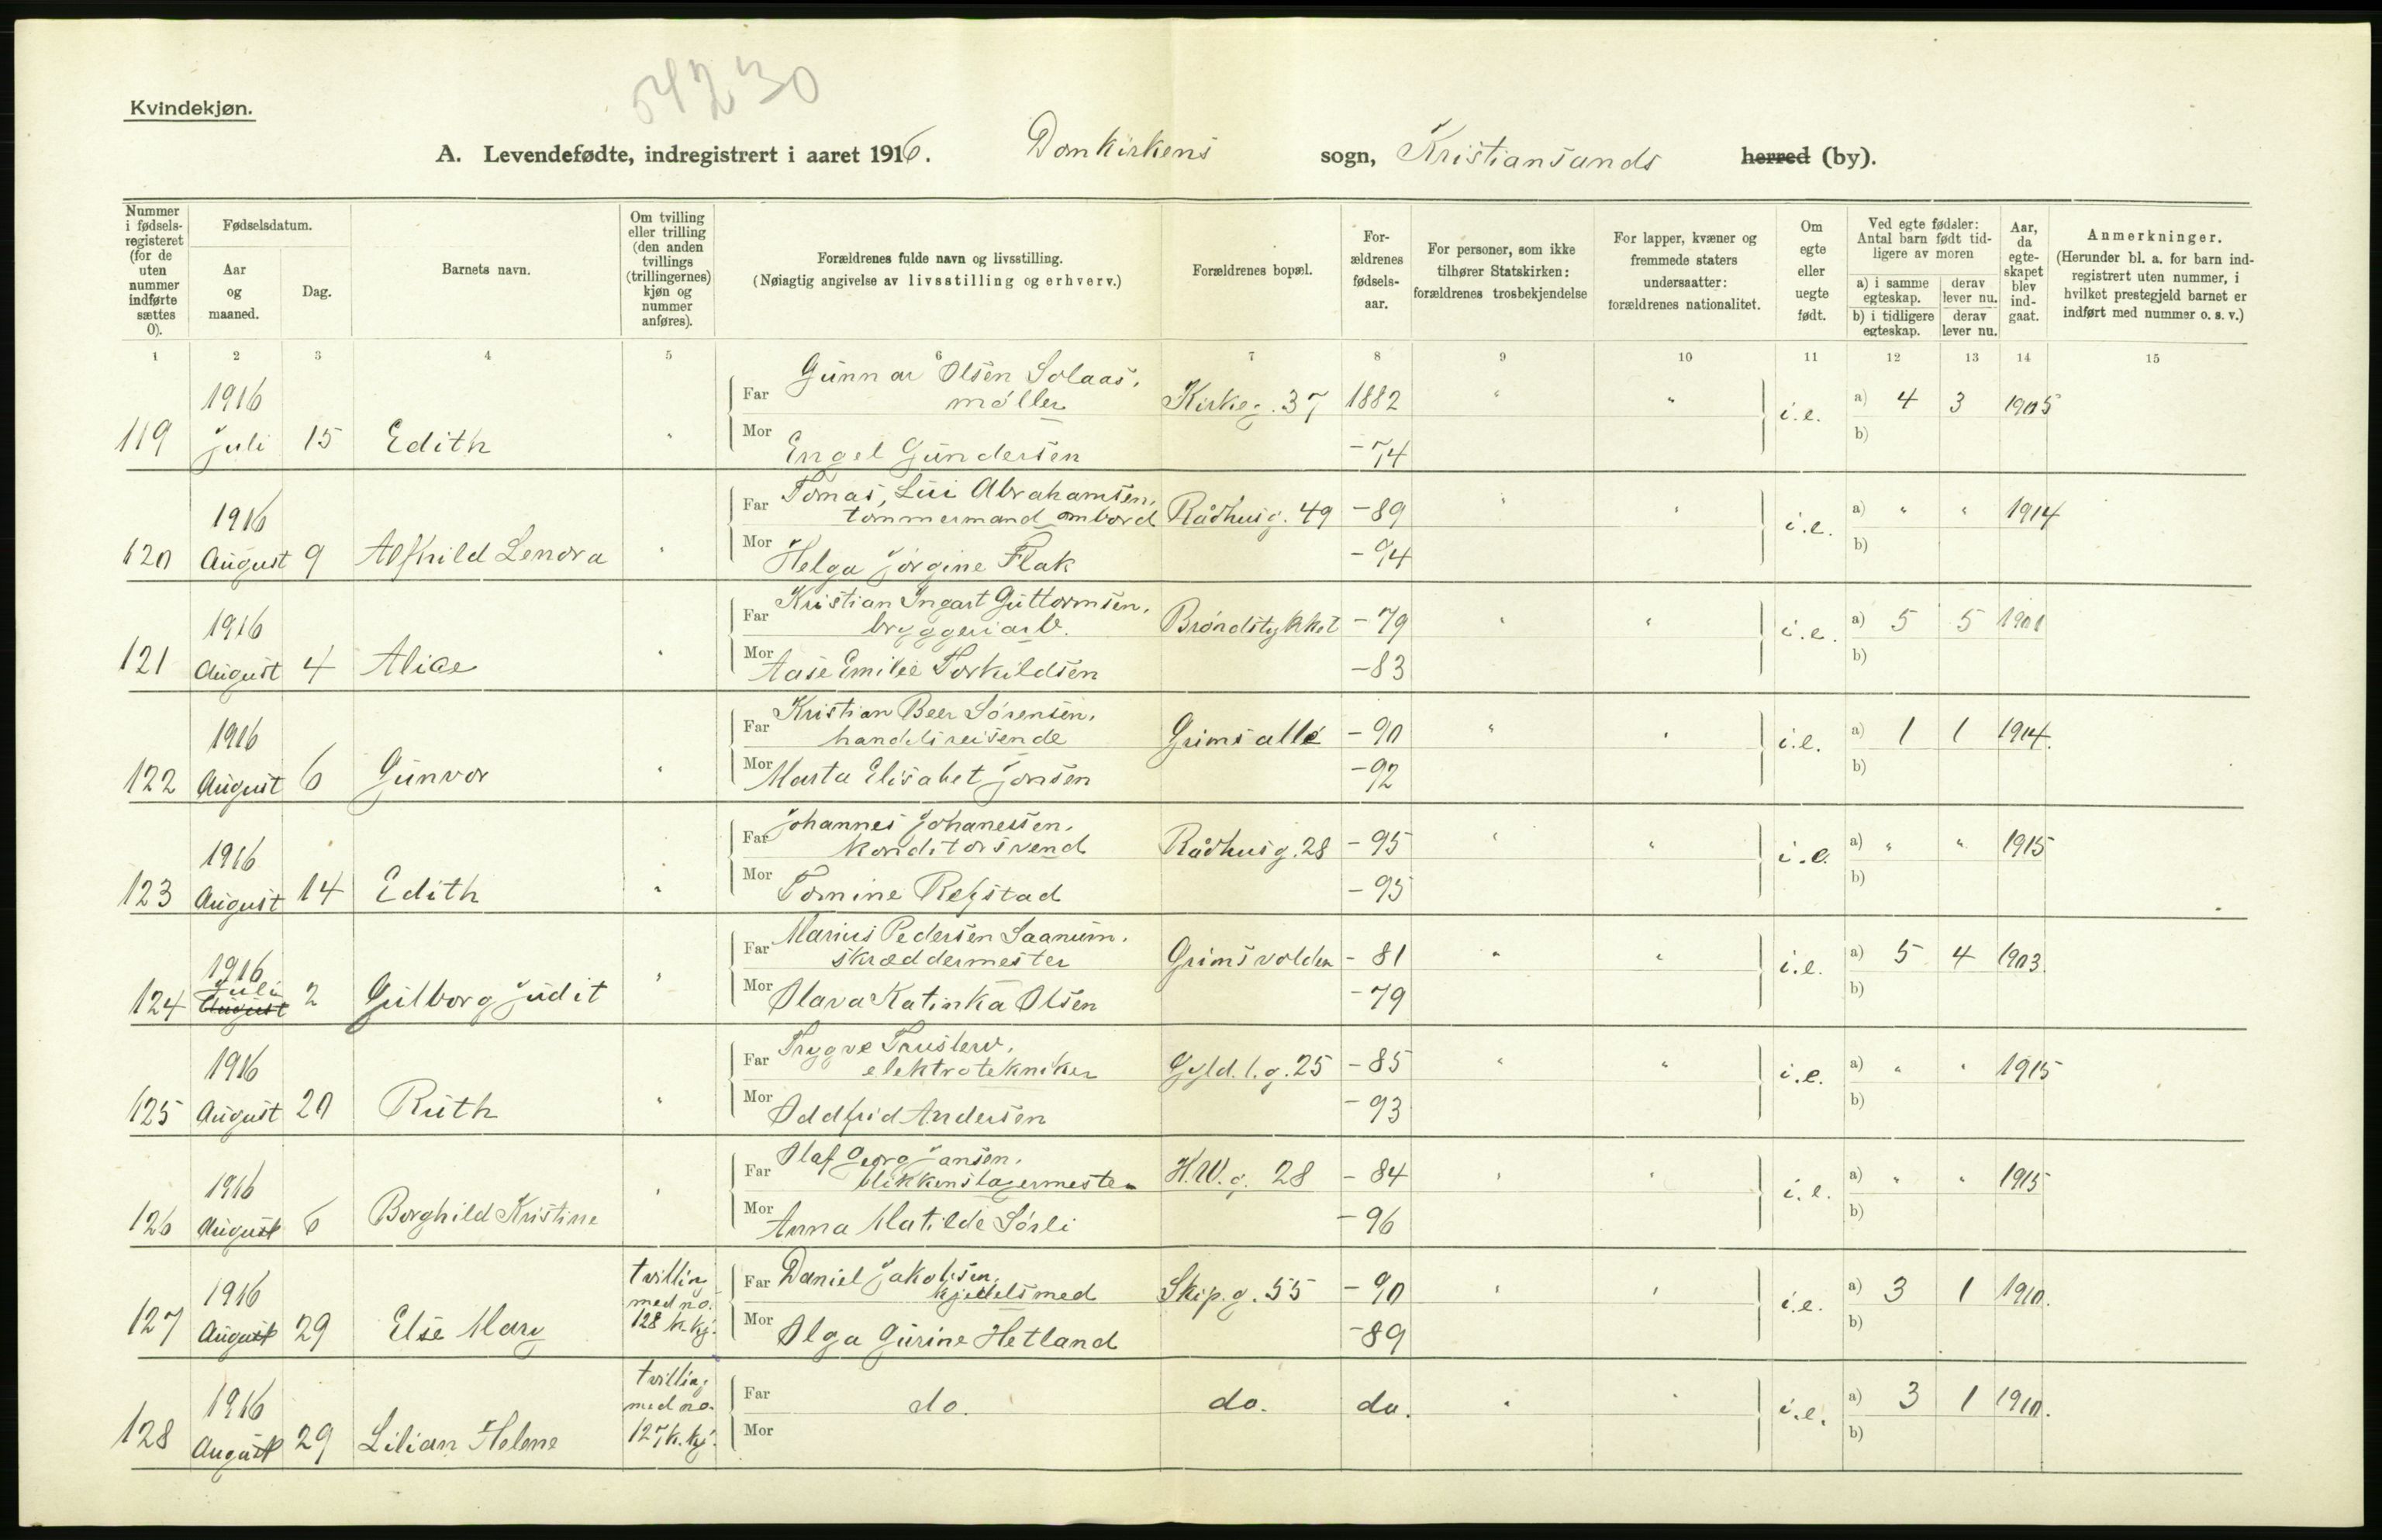 54230
Kvindekjøn.
A. Levendefødte, indregistrert i aaret 1916. Domkirkens sogn, Kristiansands herred (by).
Nummer i fødsels-registeret (for de uten nummer indførte sættes 0).
Fødselsdatum.
Aar og maaned.
Dag.
Barnets navn.
Om tvilling eller trilling (den anden tvillings (trillingernes) kjøn og nummer anføres).
Forældrenes fulde navn og livsstilling.
(Nøiagtig angivelse av livsstilling og erhverv.)
Forældrenes bopæl.
For-ældrenes fødsels-aar.
For personer, som ikke tilhører Statskirken: forældrenes trosbekjendelse
For lapper, kvæner og fremmede staters undersaatter: forældrenes nationalitet.
Om egte eller uegte født.
Ved egte fødsler: Antal barn født tid-ligere av moren
a) i samme egteskap.
derav lever nu.
b) i tidligere egteskap.
derav lever nu.
Aar, da egte-skapet blev ind-gaat.
Anmerkninger.
(Herunder bl. a. for barn ind-registrert uten nummer, i hvilket prestegjeld barnet er indført med nummer o. s. v.)
1 2 3 4 5 6 7 8 9 10 11 12 13 14 15
119 1916 Juli 15 Edith " Far Gunnar Olsen Solaas, møller Kirkeg. 37 1882 " " i.e. a) 4 3 1905
Mor Engel Gundersen -74 b)
120 1916 August 9 Alfhild Lenora " Far Tomas Lui Abrahamsen, tømmermand ombord Rådhusg. 49 -89 " " i.e. a) " " 1914
Mor Helga Jørgine Flak -94 b)
121 1916 August 4 Alice " Far Kristian Ingart Guttormsen, bryggeriarb. Brøndstykket -79 " " i.e. a) 5 5 1901
Mor Aase Emilie Torkildsen -83 b)
122 1916 August 6 Gunvor " Far Kristian Beer Sørensen, handelsreisende Grimsallé -90 " " i.e. a) 1 1 1914.
Mor Marta Elisabet Jonsen -92 b)
123 1916 August 14 Edith " Far Johannes Johanessen, konditorsvend Rådhusg. 28 -95 " " i.e. a) " " 1915
Mor Tomine Refstad -95 b)
124 1916 Juli August 2 Gulborg Judit " Far Marius Pedersen Saanum, skræddermester Grimsvolden -81 " " i.e. a) 5 4 1903
Mor Olava Katinka Olsen -79 b)
125 1916 August 20 Ruth " Far Trygve Truslew, elektrotekniker Gyld.l.g. 25 -85 " " i.e. a) " " 1915
Mor Oddfrid Andersen -93 b)
126 1916 August 6 Borghild Kristine " Far Olaf Georg Jansen, blikkenslagermester H.W.g. 28 -84 " " i.e. a) " " 1915
Mor Anna Matilde Sørli -96 b)
127 1916 August 29 Else Mary tvilling med no. 128 k.kj. Far Daniel Jakobsen, kjedelsmed Skip.g. 55 -90 " " i.e. a) 3 1 1910.
Mor Olga Gurine Hetland -89 b)
128 1916 August 29 Lilian Helene tvilling med no. 127 k.kj. Far do. do. do. " " i.e. a) 3 1 1910.
Mor b)